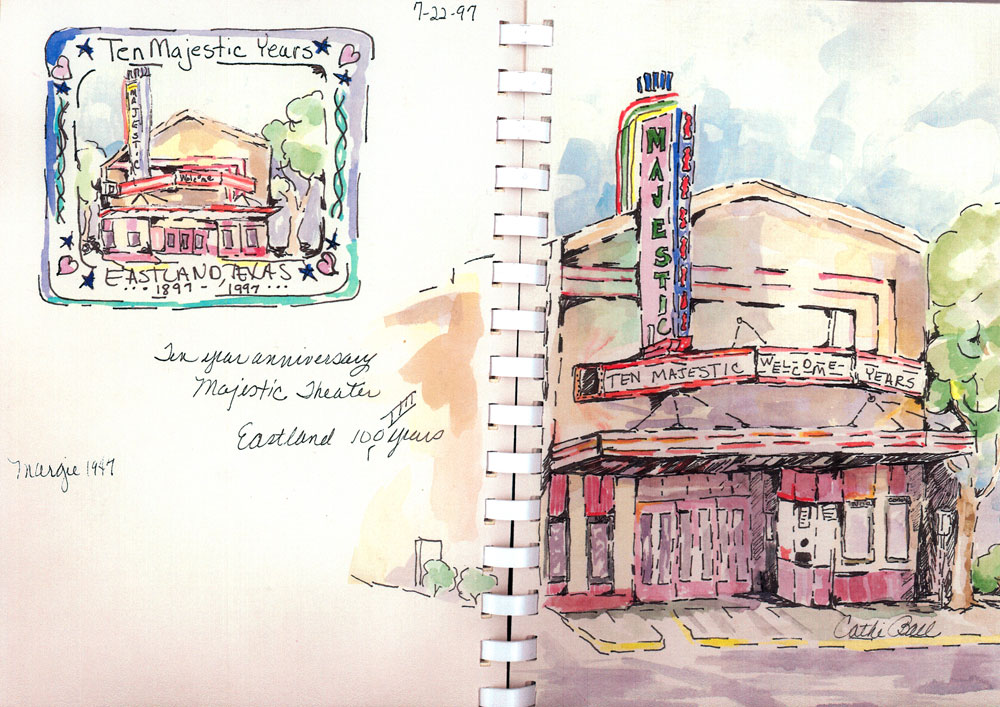 7-22-97
Ten Majestic Years
MAJESTIC
Welcome
EASTLAND, TEXAS
... 1897 - 1997 ...
Ten year anniversary
Majestic Theater
Eastland 100 years
Margie 1997
MAJESTIC
TEN MAJESTIC WELCOME YEARS
Cathi Ball